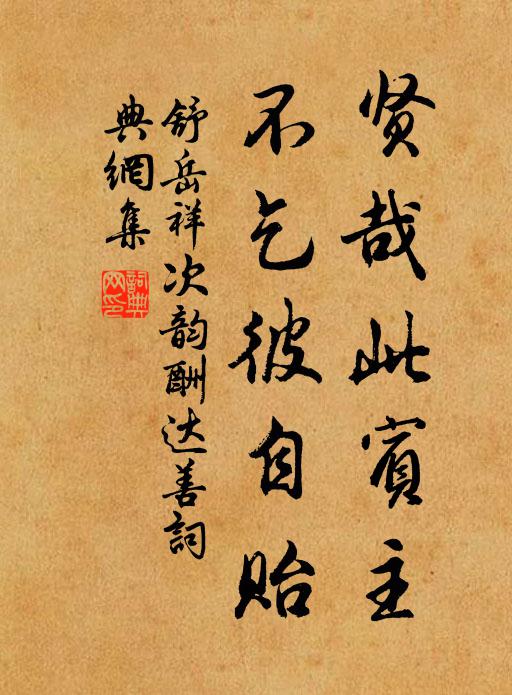 贤哉此賓主
不乞彼自贻
舒岳祥次韵酬达善詞
典網集
詞典网印